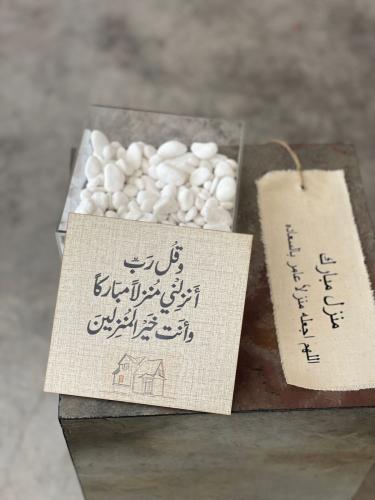 وقُل رَبّ
أَنزِلْني مُنزلاً مبَاركاً
وأنتَ خَيرُ المُنزِلينَ
منزل مبارك
اللهم اجعله منزلاً عامر بالسعاده